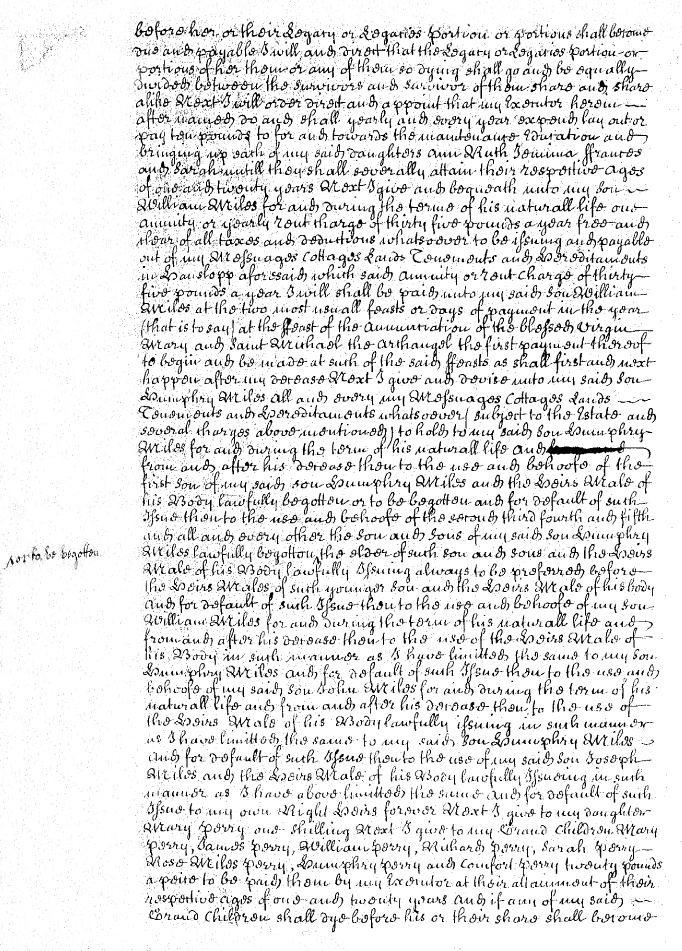 before her or their Legacy or Legacies portion or portions shall become
due and payable I will and direct that the Legacy or Legacies portion or
portions of her them or any of them so dying shall go and be equally
divided between the survivors and survivor of them share and share
alike Next I will order direct and appoint that my Executor herein
after named do and shall yearly and every year expend lay out or
pay ten pounds to for and towards the maintenance Education and
bringing up each of my said daughters Ann Ruth Jemima ffrances
and Sarah untill they shall severally attain their respective Ages
of one and twenty years Next I give and bequeath unto my son
William Miles for and during the terme of his naturall life one
Annuity or yearly rent charge of thirty five pounds a year free and
clear of all taxes and deductions whatsoever to be issuing and payable
out of my Messuages Cottages Lands Tenements and Hereditaments
in Hanslopp aforesaid which said Annuity or rent Charge of thirty
five pounds a year I will shall be paid unto my said son William
Miles at the two most usuall feasts or days of payment in the year
(that is to say) at the ffeast of the Annunciation of the blessed Virgin
Mary and Saint Michael the Archangel the first payment thereof
to begin and be made at such of the said ffeasts as shall first and next
happen after my decease Next I give and devise unto my said son
Humphry Miles All and every my Messuages Cottages Lands
Tenements and Hereditaments whatsoever (subject to the Estate and
several charges above mentioned) to hold to my said son Humphry
Miles for and during the term of his naturall life and
from and after his decease then to the use and behoofe of the
first son of my said son Humphry Miles and the Heirs Male of
his Body lawfully begotten or to be begotten and for default of such
Issue then to the use and behoofe of the second third fourth and fifth
and all and every other the son and sons of my said son Humphry
or to be begotten
Miles lawfully begotten, the elder of such son and sons and the Heirs
Male of his Body lawfully Issuing always to be preferred before
the Heirs Males of such younger son and the Heirs Male of his body
And for default of such Issue then to the use and behoofe of my son
William Miles for and during the term of his naturall life and
from and after his decease then to the use of the Heirs Male of
his Body in such manner as I have limitted the same to my son
Humphry Miles and for default of such Issue then to the use and
behoofe of my said son John Miles for and during the term of his
naturall life and from and after his decease then to the use of
the Heirs Male of his Body lawfully issuing in such manner
as I have limitted the same to my said son Humphry Miles
And for default of such Issue then to the use of my said son Joseph
Miles and the Heirs Male of his Body lawfully Issueing in such
manner as I have above limitted the same And for default of such
Issue to my own Right Heirs forever Next I give to my daughter
Mary Perry one shilling Next I give to my Grand Children Mary
Perry, James Perry, William Perry, Richard Perry, Sarah Perry
Rose Miles Perry, Humphry Perry and Comfort Perry twenty pounds
a peice to be paid them by my Executor at their attainment of their
respective Ages of one and twenty years And if any of my said
Grand Children shall dye before his or their share shall become